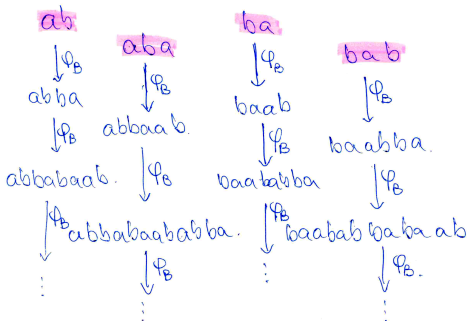 ab
φ_B
abba
φ_B
abbabaab.
φ_B
⋮
aba
φ_B
abbaab.
φ_B
abbabaababba.
φ_B
⋮
ba
φ_B
baab
φ_B
baababba
φ_B
⋮
bab
φ_B
baabba.
φ_B
baababbabaab
φ_B.
⋮